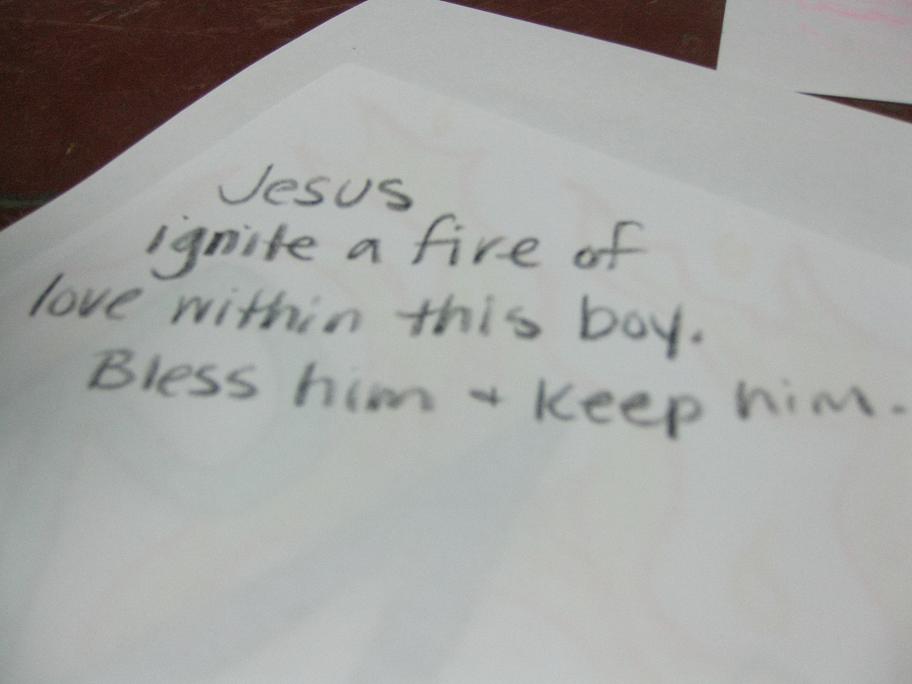 Jesus
ignite a fire of
love within this boy.
Bless him + Keep him.